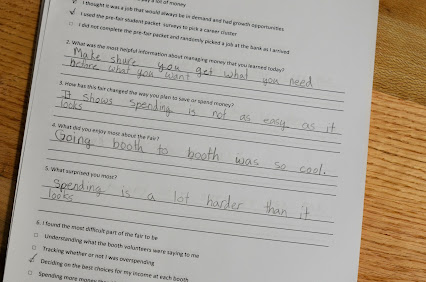 pay a lot of money
✓ I thought it was a job that would always be in demand and had growth opportunities
✓ I used the pre-fair student packet surveys to pick a career cluster
□ I did not complete the pre-fair packet and randomly picked a job at the bank as I arrived
2. What was the most helpful information about managing money that you learned today?
Make shure you get what you need
before what you want
3. How has this fair changed the way you plan to save or spend money?
It shows spending is not as easy as it
looks
4. What did you enjoy most about the fair?
Going booth to booth was so cool.
5. What surprised you most?
Spending is a lot harder than it
looks
6. I found the most difficult part of the fair to be
□ Understanding what the booth volunteers were saying to me
□ Tracking whether or not I was overspending
✓ Deciding on the best choices for my income at each booth
□ Spending more money